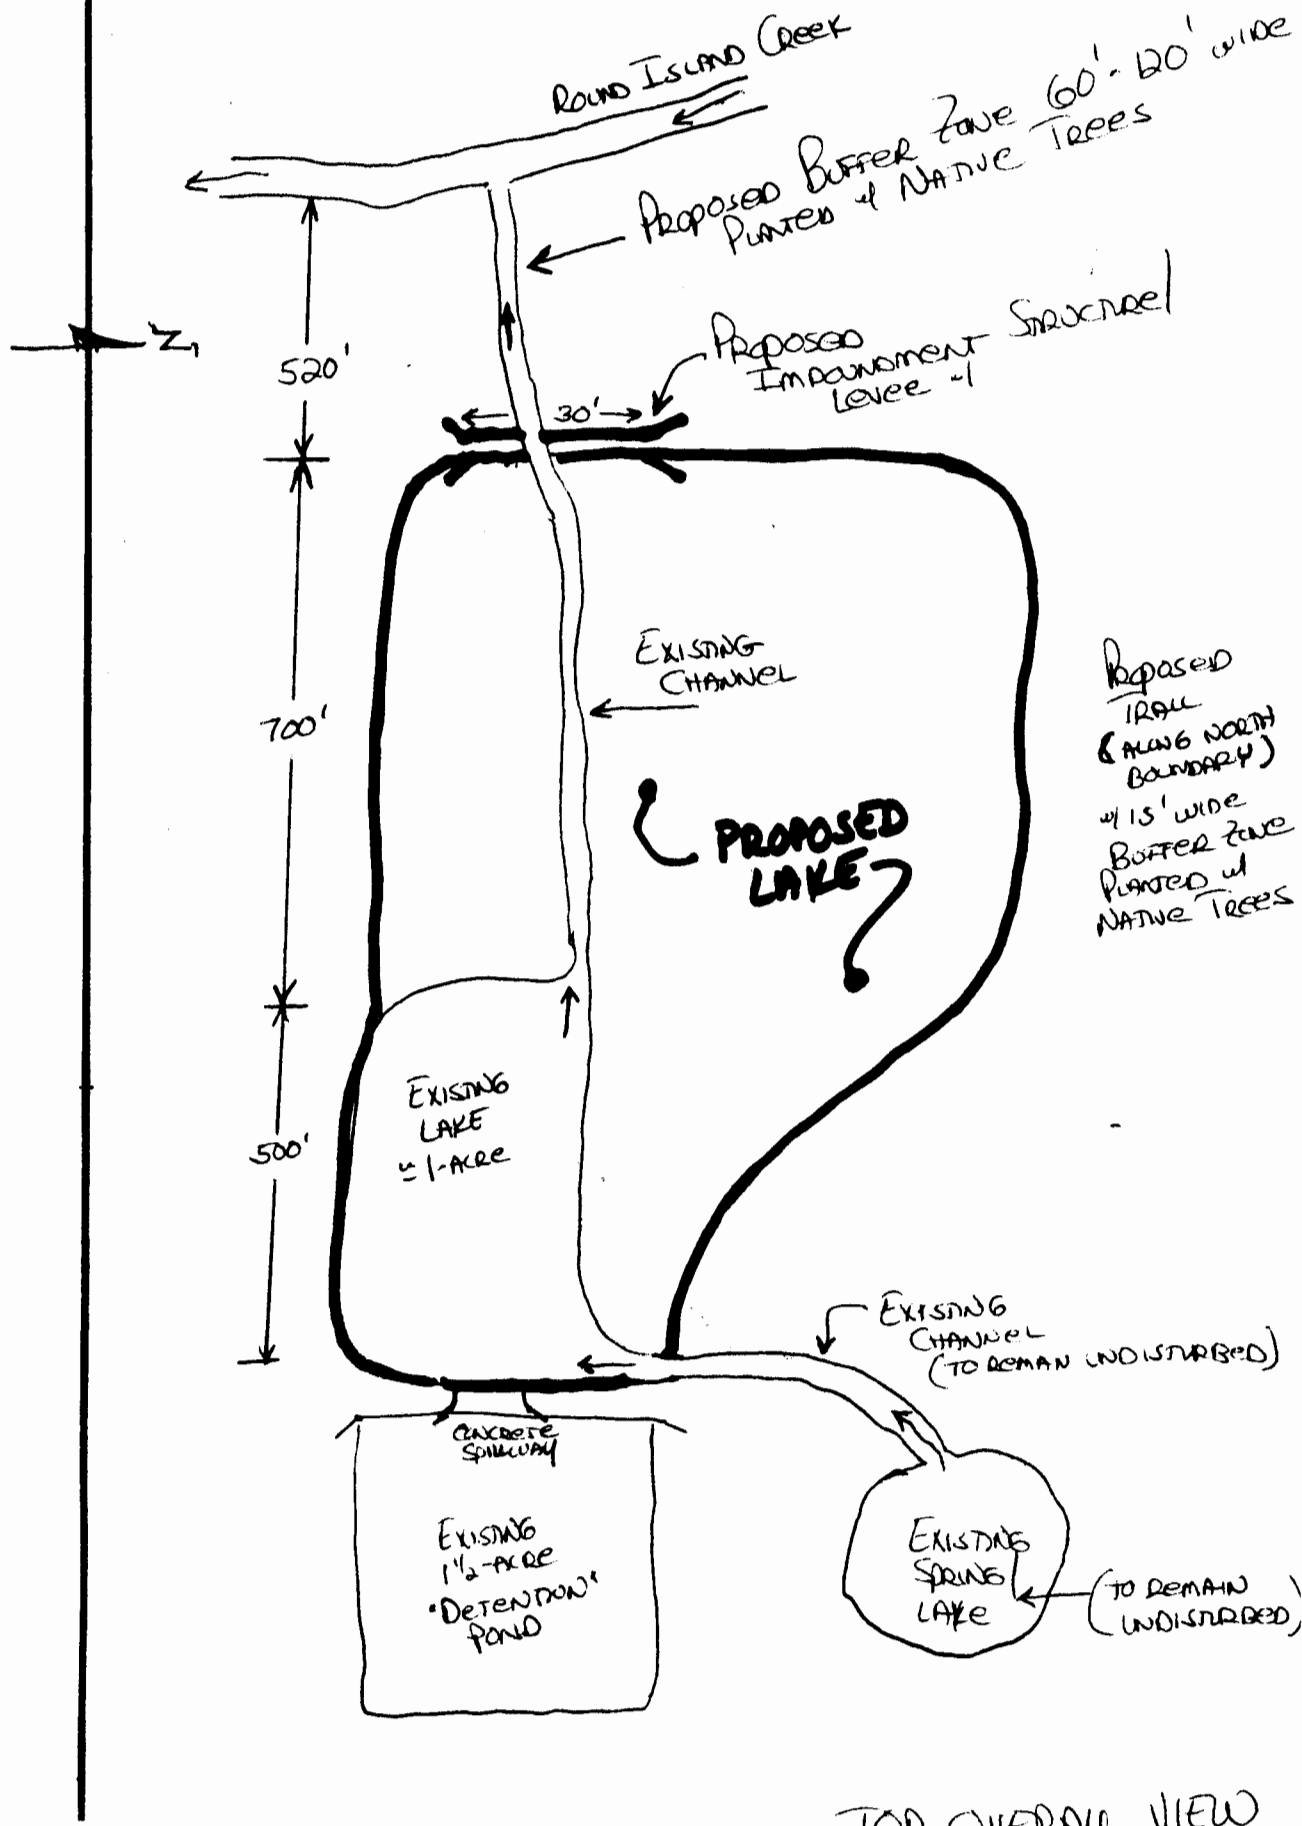 ROUND ISLAND CREEK
PROPOSED BUFFER ZONE 60'-120' WIDE
PLANTED w/ NATIVE TREES
N
520'
PROPOSED
IMPOUNDMENT STRUCTURE/
LEVEE
30'
EXISTING
CHANNEL
700'
PROPOSED
TRAIL
(ALONG NORTH
BOUNDARY)
w/ 15' WIDE
BUFFER ZONE
PLANTED w/
NATIVE TREES
PROPOSED
LAKE
EXISTING
LAKE
≈ 1-ACRE
500'
EXISTING
CHANNEL
(TO REMAIN UNDISTURBED)
CONCRETE
SPILLWAY
EXISTING
1 1/2-ACRE
"DETENTION"
POND
EXISTING
SPRING
LAKE
(TO REMAIN
UNDISTURBED)
TOP OVERALL VIEW